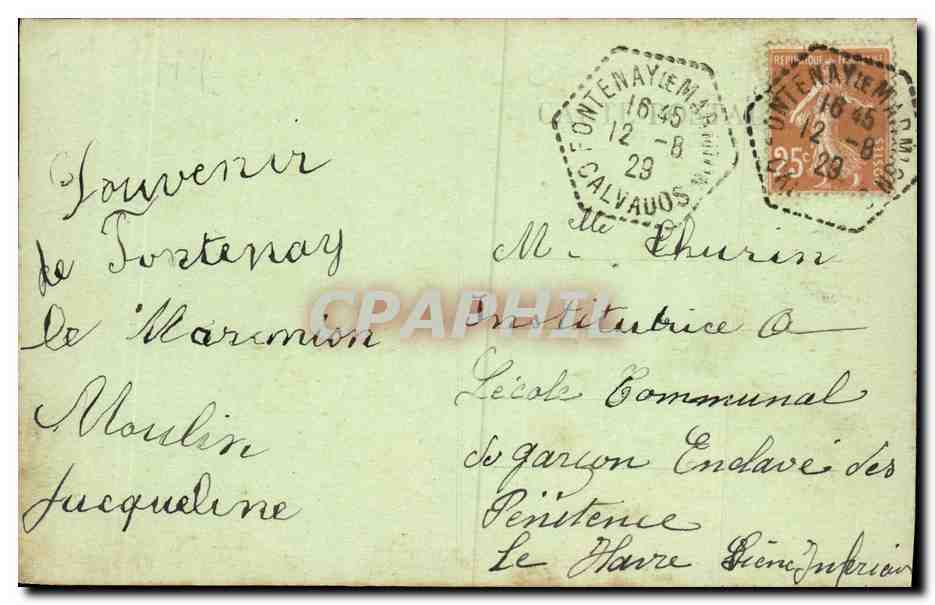 Souvenir
de Fontenay
le Marmion
Moulin
Jacqueline
FONTENAY LE MARMION
16 45
12 -8
29
CALVADOS
REPUBLIQUE FRANCAISE
25c
POSTES
FONTENAY LE MARMION
16 45
12 -8
29
CARTE POSTALE
Mlle Thurin
Institutrice a
Lécole Communal
de garçon Enclavé des
Pénitence
Le Havre Seine Inferieur
CPAPHIL